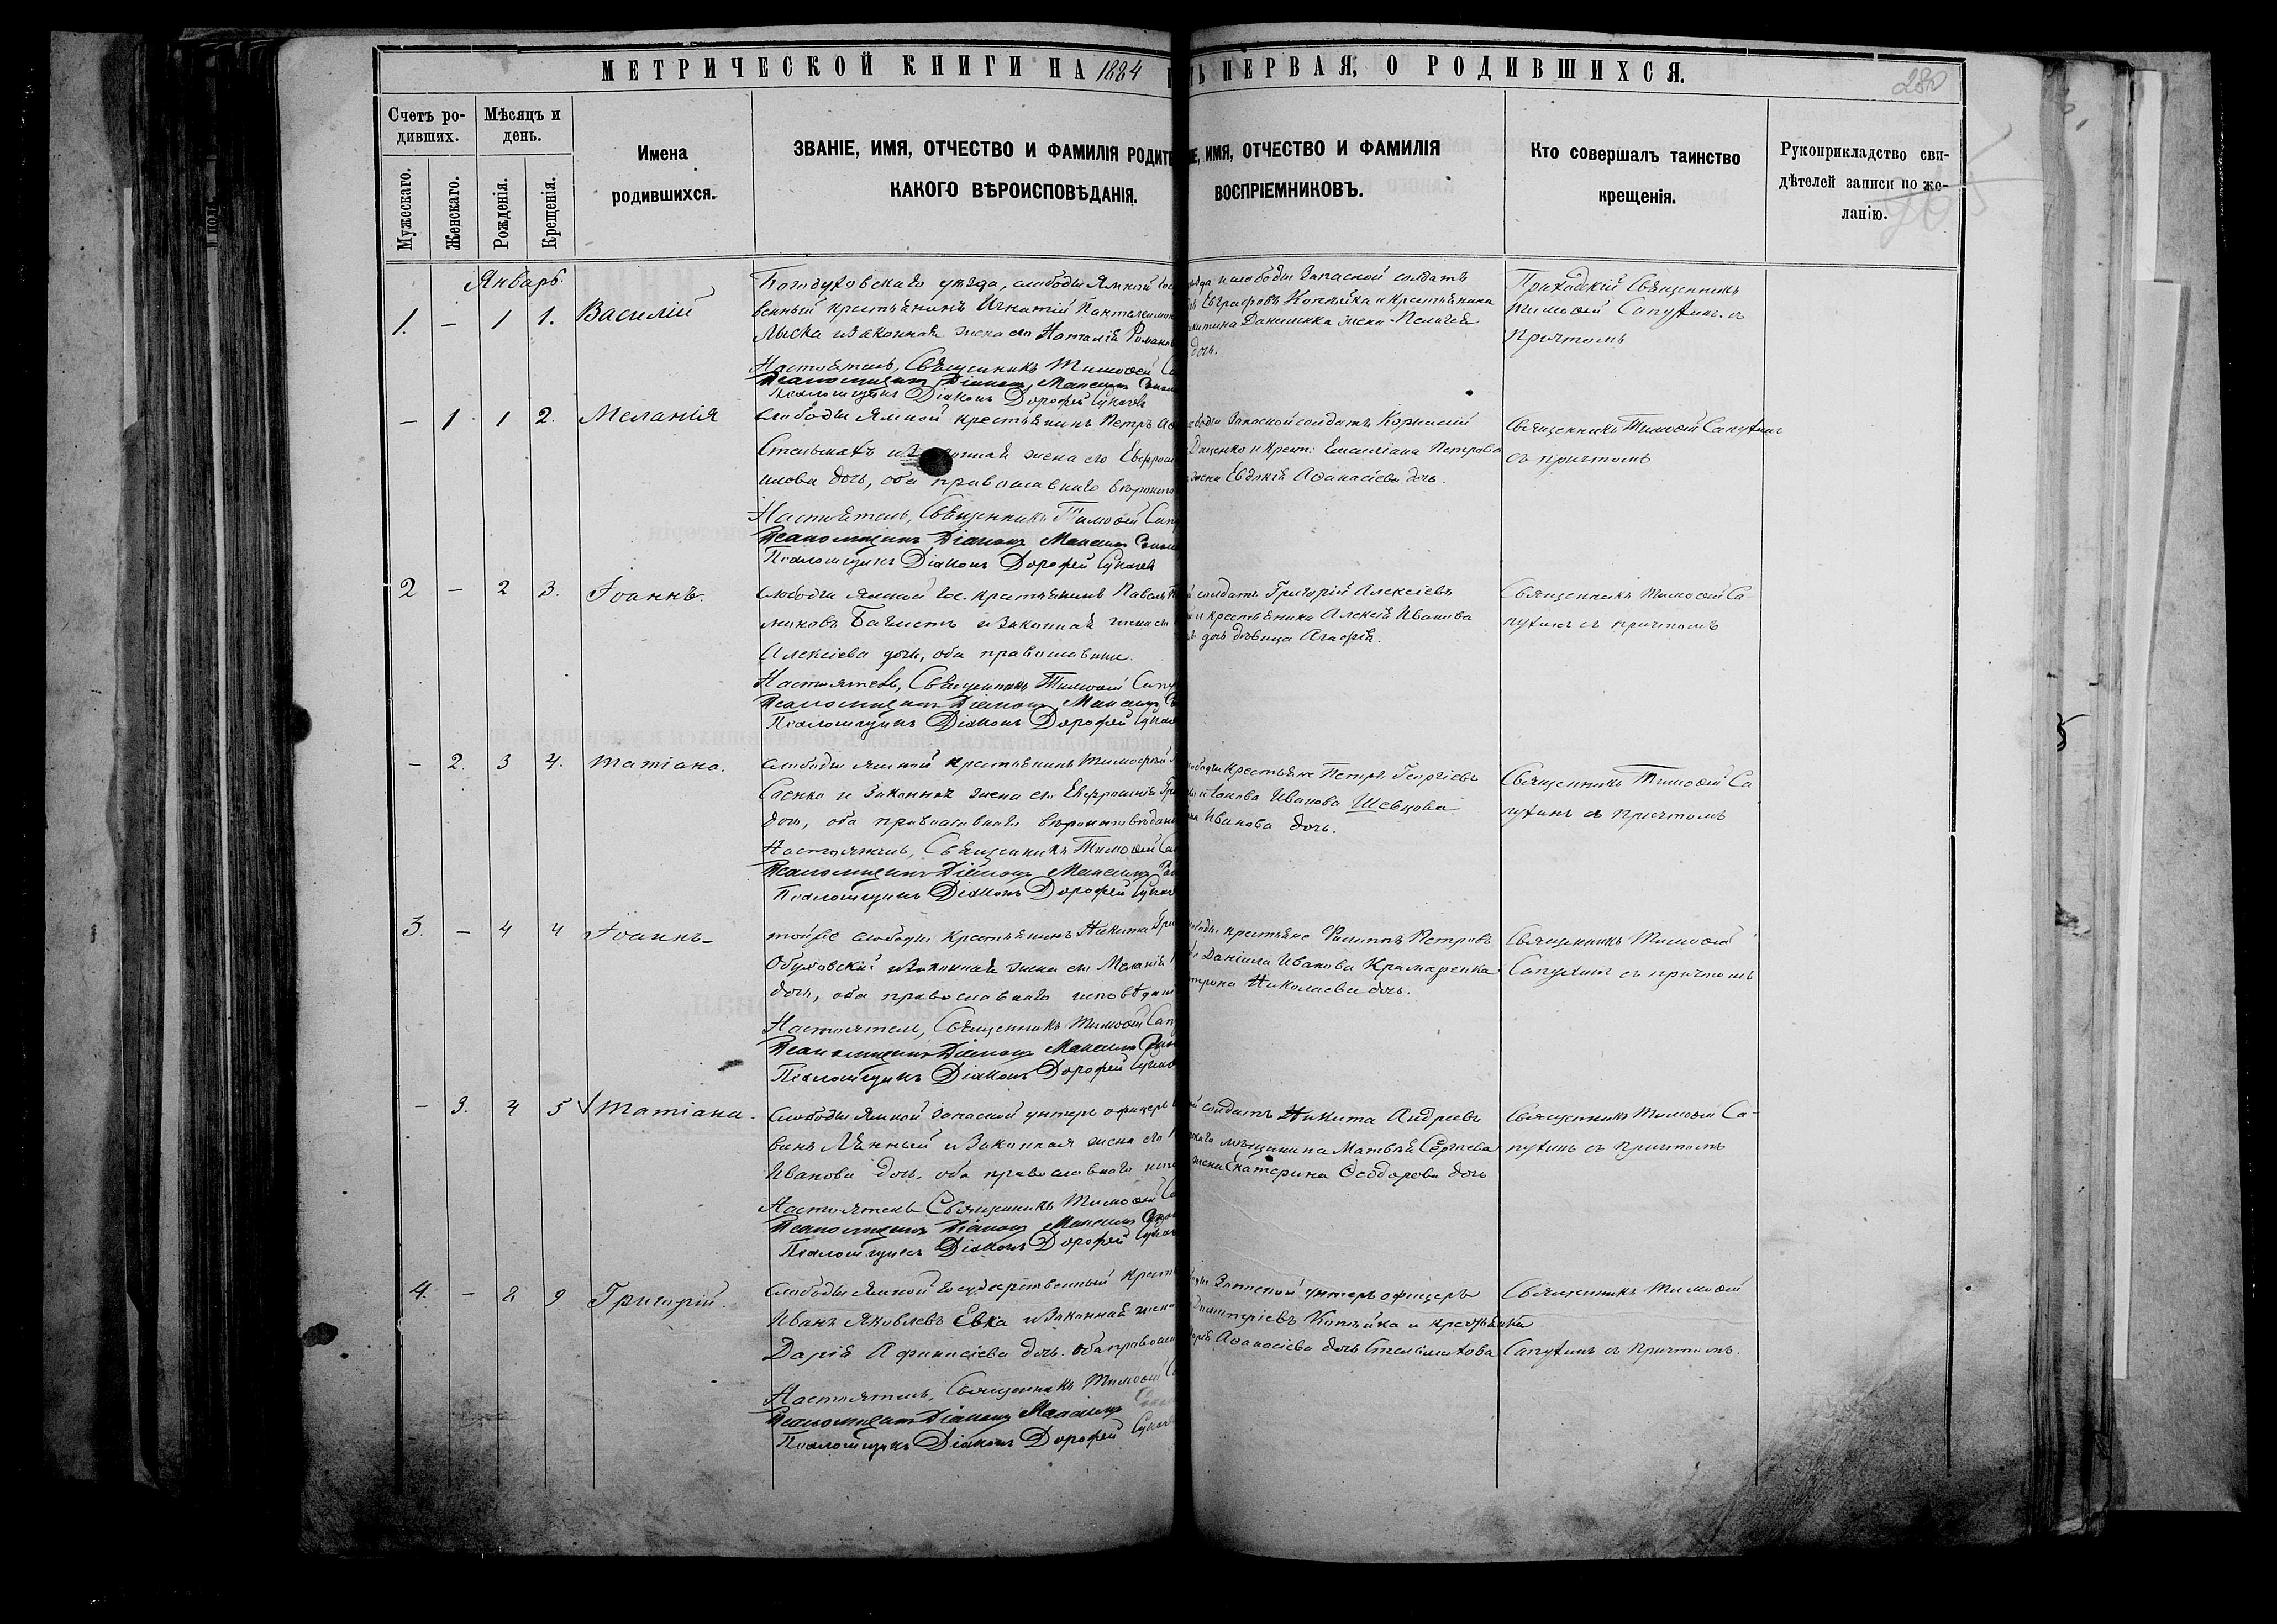 МЕТРИЧЕСКОЙ КНИГИ НА 1884
Ь ПЕРВАЯ, О РОДИВШИХСЯ.
280
Счетъ ро-
дившихъ.
Мѣсяцъ и
день.
Мужескаго.
Женскаго.
Рожденія.
Крещенія.
Имена
родившихся.
ЗВАНІЕ, ИМЯ, ОТЧЕСТВО И ФАМИЛІЯ РОДИТЕ
КАКОГО ВѢРОИСПОВѢДАНІЯ.
ІЕ, ИМЯ, ОТЧЕСТВО И ФАМИЛІЯ
ВОСПРІЕМНИКОВЪ.
Кто совершалъ таинство
крещенія.
Рукоприкладство сви-
дѣтелей записи по же-
ланію.
Январь.
1. – 1 1. Василій
Богодуховскаго уѣзда, слободы Ямной Гос
венный крестьянинъ Игнатій Пантелеимон
Лыска и законная жена его Наталія Роман
Настоятель, Священникъ Тимоѳей Са
Псаломщикъ Діаконъ Максимъ
Псаломщикъ Діаконъ Дорофей Сукачев
слободы Запасной солдатъ
Евграфовъ Копѣйка и крестьянина
Данилика жена Пелагея
дочь.
Приходскій Священникъ
Тимоѳей Сапухинъ съ
причтомъ
– 1 1 2. Меланія
Слободы Ямной крестьянинъ Петръ
Стельмахъ и законная жена его Евфрос
дочь, оба православнаго вѣроиспо
Настоятель, Священникъ Тимоѳей Сап
Псаломщикъ Діаконъ Максимъ
Псаломщикъ Діаконъ Дорофей Сукачев
Запасной солдатъ Корнилій
Даценко и крест: Емиліана Петрова
жена Евдокія Аѳанасіева дочь.
Священникъ Тимоѳей Сапухинъ
съ причтомъ
2 – 2 3. Іоаннъ.
Слободы Ямной Гос. крестьянинъ Павелъ
Багместъ и законная жена его
Алексіева дочь, оба православные.
Настоятель, Священникъ Тимоѳей Сапу
Псаломщикъ Діаконъ Максимъ
Псаломщикъ Діаконъ Дорофей Сукач
солдатъ Григорій Алексіевъ
и крестьянина Алексія Иванова
дочь дѣвица Агафія.
Священникъ Тимоѳей Са-
пухинъ съ причтомъ
– 2. 3 4. Татіана.
Слободы Ямной крестьянинъ Тимофей
Саенко и законная жена его Евфросинія Гри
дочь, оба православнаго вѣроисповѣдан
Настоятель, Священникъ Тимоѳей Са
Псаломщикъ Діаконъ Максимъ
Псаломщикъ Діаконъ Дорофей Сукач
крестьяне Петръ Георгіевъ
Иванова Шевцова
Иванова дочь.
Священникъ Тимоѳей Са
пухинъ съ причтомъ
3. – 4 4 Іоаннъ
той же слободы крестьянинъ Никита Гри
Обуховскій и законная жена его Меланія
дочь, оба православнаго исповѣдан
Настоятель, Священникъ Тимоѳей Сап
Псаломщикъ Діаконъ Максимъ
Псаломщикъ Діаконъ Дорофей Сукач
крестьяне Филиппъ Петровъ
Даніила Иванова Крамаренка
Николаева дочь.
Священникъ Тимоѳей
Сапухинъ съ причтомъ
– 3. 4 5 Татіана.
Слободы Ямной запасной унтеръ офицеръ
и законная жена его
Иванова дочь, оба православнаго испо
Настоятель Священникъ Тимоѳей Са
Псаломщикъ Діаконъ Максимъ
Псаломщикъ Діаконъ Дорофей Сукач
солдатъ Никита Андреевъ
мѣщанина Матвѣя Сергѣева
жена Екатерина Ѳеодорова дочь
Священникъ Тимоѳей Са-
пухинъ съ причтомъ
4. – 8 9 Григорій.
Слободы Ямной Государственный крест
Иванъ Яковлевъ Евка и законная жена
Дарія Афанасіева дочь. оба правосла
Настоятель, Священникъ Тимоѳей С
Псаломщикъ Діаконъ Максимъ
Псаломщикъ Діаконъ Дорофей Сукач
Запасной унтеръ офицеръ
Димитріевъ Копѣйка и крестьянка
Аѳанасіева дочь Стельмахова
Священникъ Тимоѳей
Сапухинъ съ причтомъ.